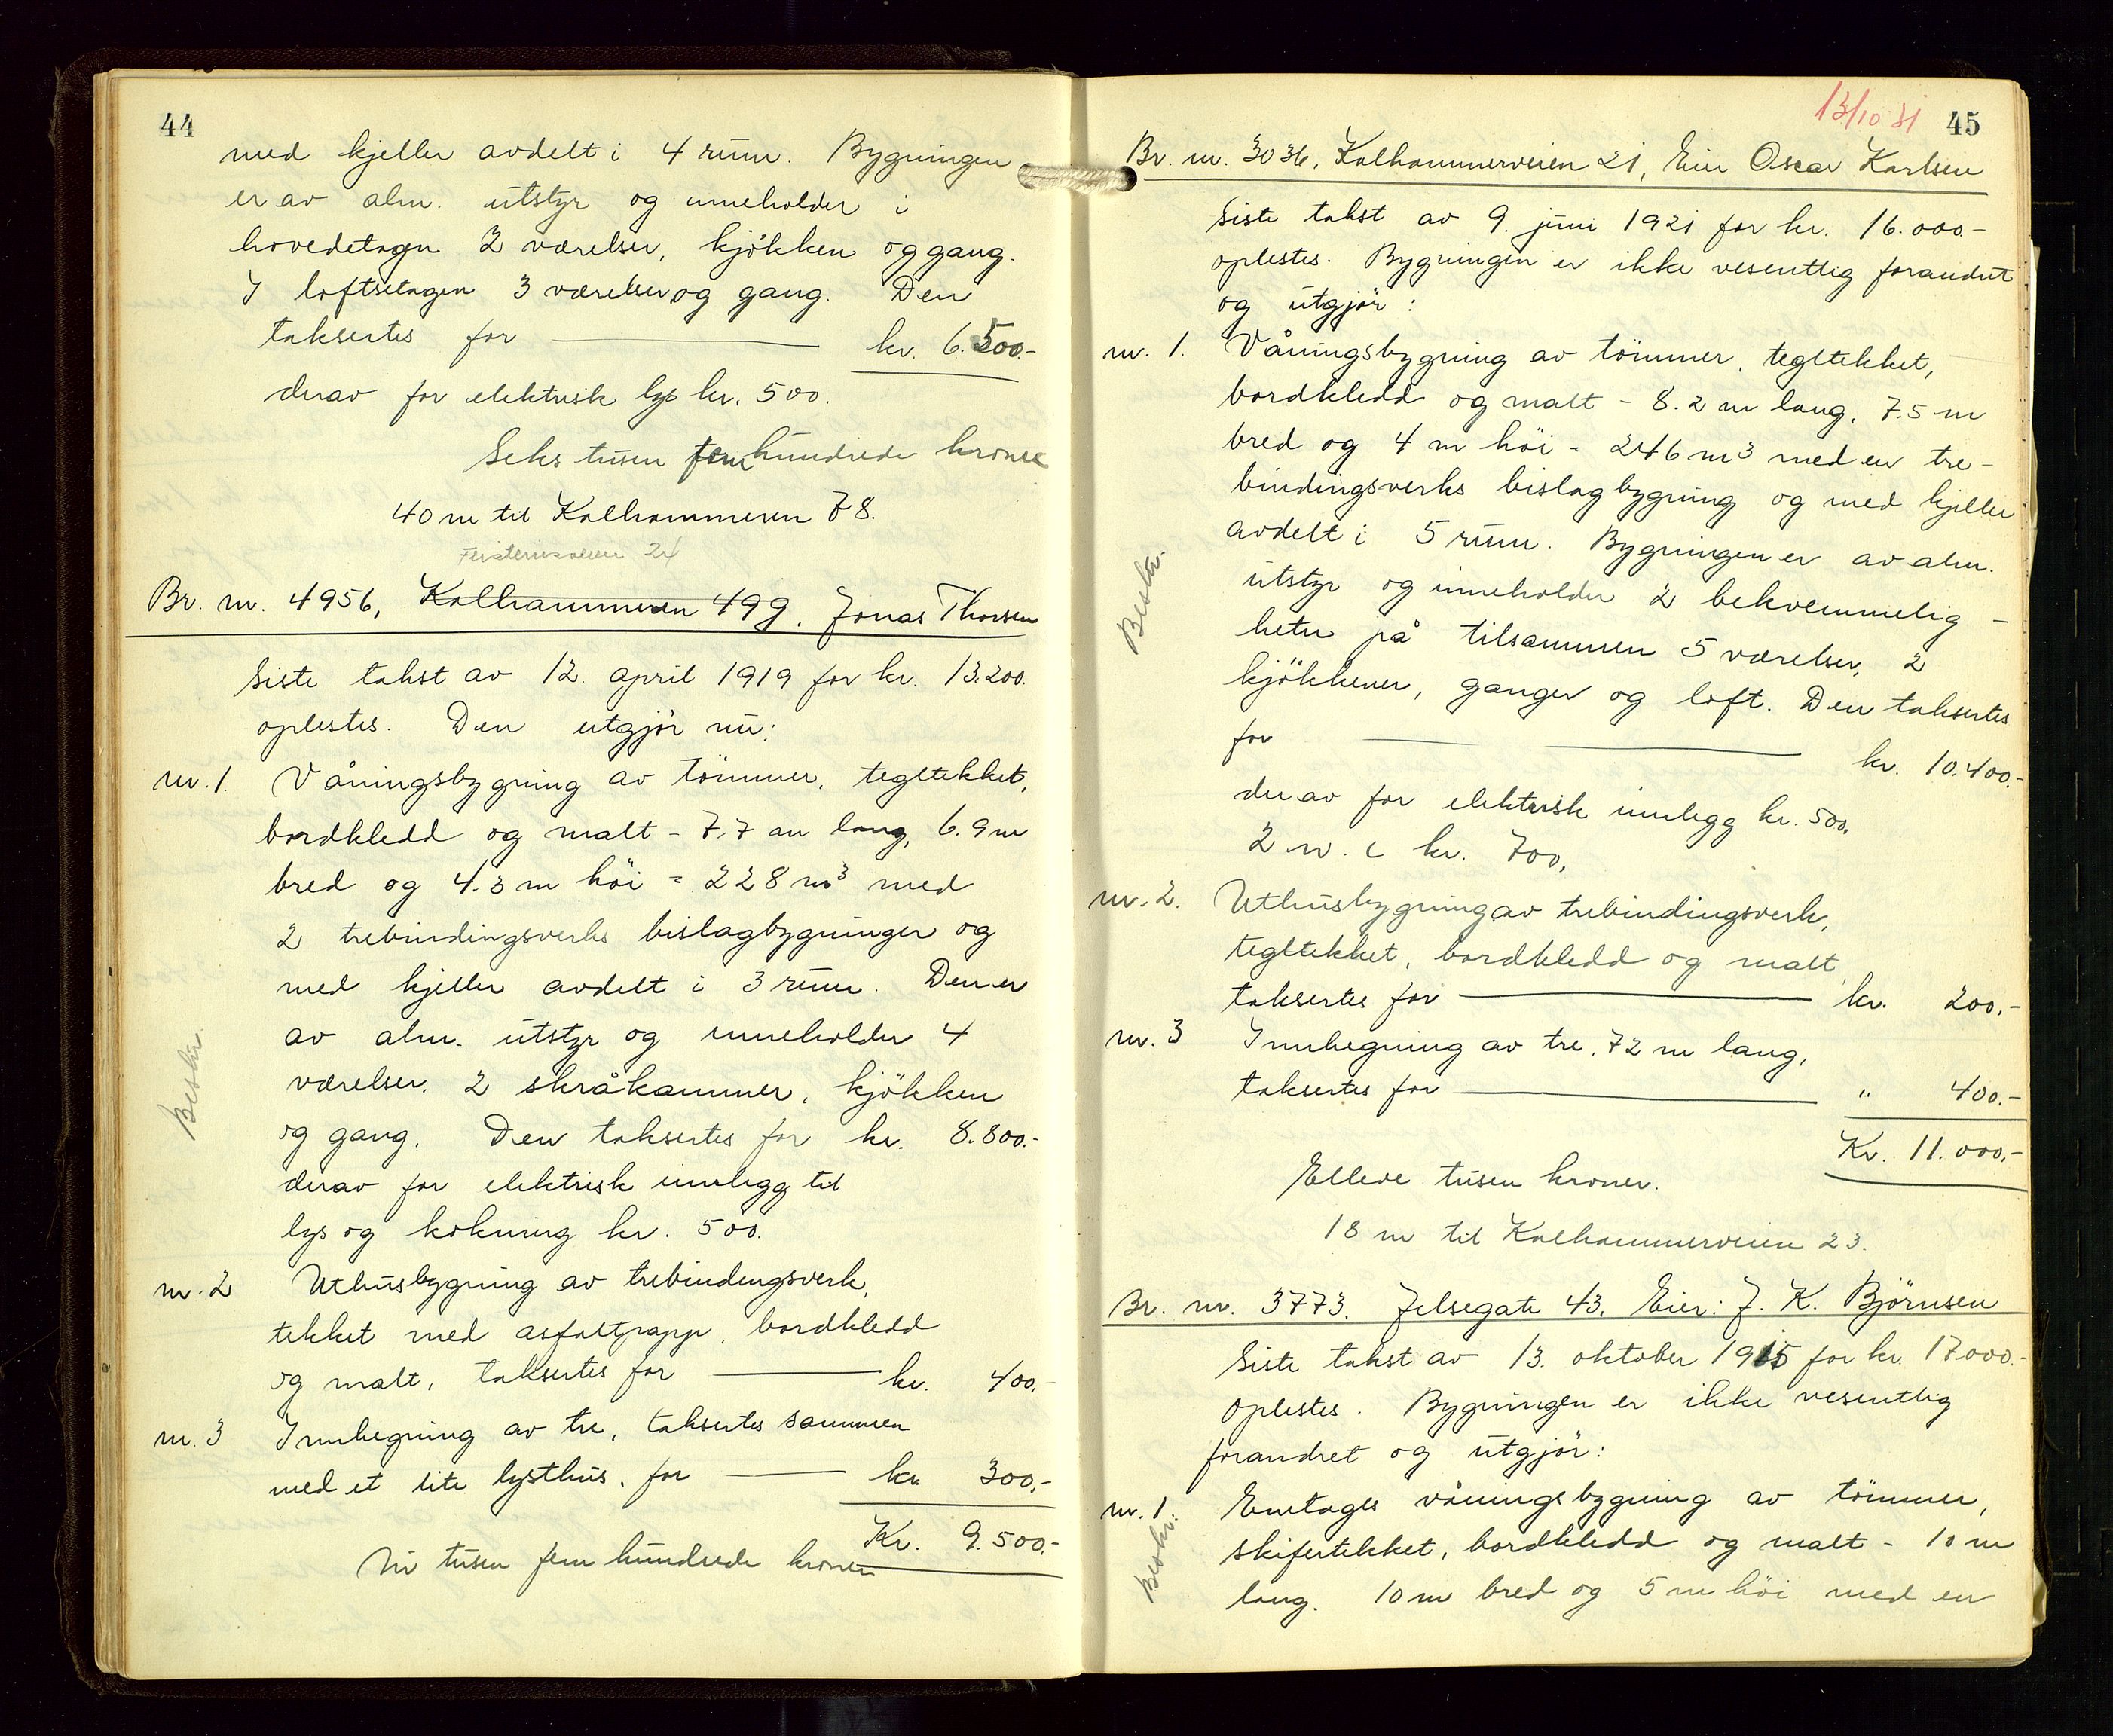 44
med kjeller avdelt i 4 rum. Bygningen
er av alm. utstyr og inneholder i
hovedetagen 2 værelser, kjökken og gang.
I loftsetagen 3 værelser og gang. Den
taksertes for kr. 6.500.-
derav for elektrisk lys kr. 500.
Seks tusen fem hundrede kroner
40 m til Kalhammeren 78.
24
Br. nr. 4956, Kalhammeren 49g. Jonas Thorsen
Siste takst av 12. april 1919 for kr. 13.200.
oplestes. Den utgjör nu:
nr. 1. Våningsbygning av tömmer, tegltekket,
bordkledd og malt - 7.7 m lang, 6.9 m
bred og 4.3 m höi = 228 m³ med
2 trebindingsverks bislagbygninger og
med kjeller avdelt i 3 rum. Den er
av alm. utstyr og inneholder 4
værelser, 2 skråkammer, kjökken
og gang. Den taksertes for kr. 8.800.-
derav for elektrisk innlegg til
lys og kokning kr. 500.
nr. 2 Uthusbygning av trebindingsverk,
tekket med asfaltpapp, bordkledd
og malt, taksertes for kr. 400.-
nr. 3 Innhegning av tre, taksertes sammen
med et lite lysthus, for kr. 300.-
Kr. 9.500.-
Ni tusen fem hundrede kroner
Beskr.
13/10 31
45
Br. nr. 3036, Kalhammerveien 21, Eier Oscar Karlsen
Siste takst av 9. juni 1921 for kr. 16.000.-
oplestes. Bygningen er ikke vesentlig forandret
og utgjör:
nr. 1. Våningsbygning av tömmer, tegltekket,
bordkledd og malt - 8.2 m lang, 7.5 m
bred og 4 m höi = 246 m³ med en tre-
bindingsverks bislagbygning og med kjeller
avdelt i 5 rum. Bygningen er av alm.
utstyr og inneholder 2 bekvemmelig-
heter på tilsammen 5 værelser, 2
kjökkener, ganger og loft. Den taksertes
for kr. 10.400.-
derav for elektrisk innlegg kr. 500,
2 w. c kr. 700,
nr. 2. Uthusbygning av trebindingsverk,
tegltekket, bordkledd og malt,
taksertes for kr. 200.-
nr. 3 Innhegning av tre, 72 m lang,
taksertes for " 400.-
Kr. 11.000.-
Elleve tusen kroner.
18 m til Kalhammerveien 23.
Beskr.
Br. nr. 3773. Jelsegate 43. Eier: J. K. Björnsen
Siste takst av 13. oktober 1915 for kr. 17.000.-
oplestes. Bygningen er ikke vesentlig
forandret og utgjör:
nr. 1. Enetages våningsbygning av tömmer,
skifertekket, bordkledd og malt - 10 m
lang. 10 m bred og 5 m höi med en
Beskr.